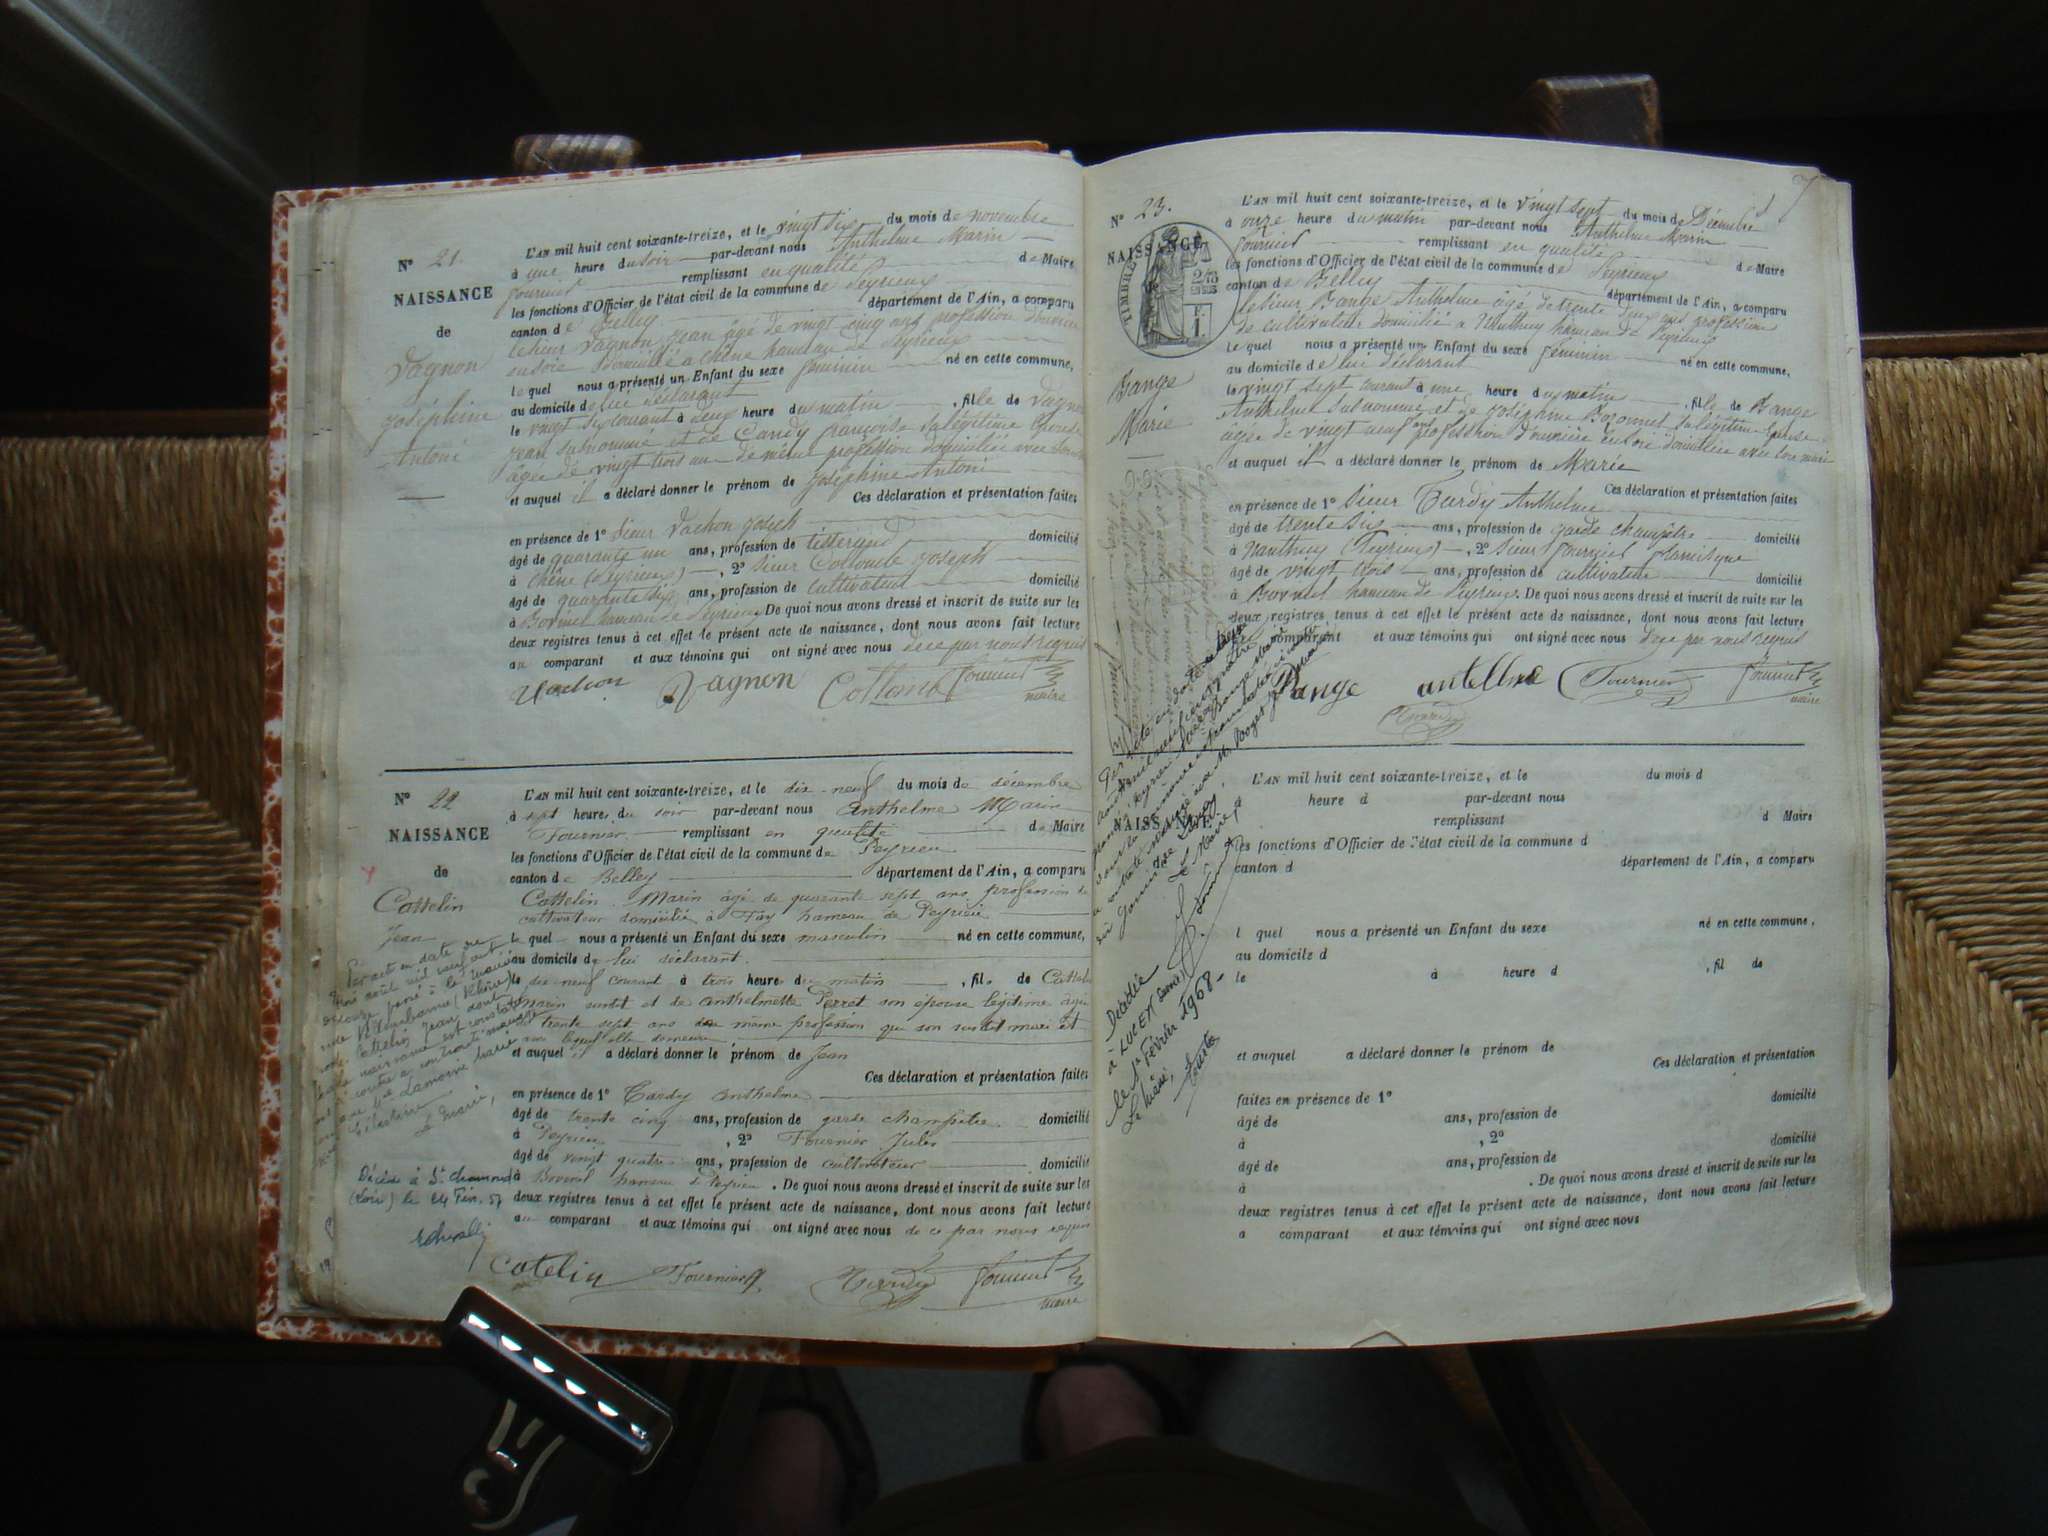 N° 21.
NAISSANCE
de
Vagnon
Joséphine
Antoni
L'AN mil huit cent soixante-treize, et le vingt six du mois de novembre
à une heure du soir par-devant nous Anthelme Marin
fournier remplissant en qualité de Maire
les fonctions d'Officier de l'état civil de la commune de Peyrieux
canton de Belley département de l'Ain, a comparu
le sieur Vagnon Jean âgé de vingt cinq ans profession d'ouvrier
en soie domicilié a Chêne hameau de Peyrieux
le quel nous a présenté un Enfant du sexe féminin né en cette commune,
au domicile de lui déclarant
le vingt six courant à deux heure du matin , fille de Vagnon
Jean susnommé et de Candy françoise sa légitime Epouse
âgée de vingt trois ans de même profession domiciliée avec
et auquel il a déclaré donner le prénom de Joséphine Antoni
Ces déclaration et présentation faites
en présence de 1° Sieur Vachon Joseh
âgé de quarante un ans, profession de tisserand domicilié
à Chêne (Peyrieux) , 2° Sieur Colloud Joseph
âgé de quarante six ans, profession de cultivateur domicilié
à hameau de Peyrieux De quoi nous avons dressé et inscrit de suite sur les
deux registres tenus à cet effet le présent acte de naissance, dont nous avons fait lecture
au comparant et aux témoins qui ont signé avec nous de ce par nous requis
Vachon Vagnon fournier
maire
N° 22
NAISSANCE
de
Cattelin
Jean
L'AN mil huit cent soixante-treize, et le dix-neuf du mois de décembre
à sept heure du soir par-devant nous Anthelme Marin
Fournier remplissant en qualité de Maire
les fonctions d'Officier de l'état civil de la commune de Peyrieu
canton de Belley département de l'Ain, a comparu
Cattelin Marin âgé de quarante sept ans, profession de
cultivateur domicilié à Fay hameau de Peyrieu
le quel nous a présenté un Enfant du sexe masculin né en cette commune,
au domicile de lui déclarant.
le dix-neuf courant à trois heure du matin , fils de Cattelin
Marin susdit et de Anthelmette Perret son épouse légitime âgée
de trente sept ans de même profession que son susdit mari et
avec lequel elle demeure
et auquel il a déclaré donner le prénom de Jean
Ces déclaration et présentation faites
en présence de 1° Tardy Anthelme
âgé de trente cinq ans, profession de garde champêtre domicilié
à Peyrieu , 2° Fournier Jules
âgé de vingt quatre ans, profession de cultivateur domicilié
à hameau de Peyrieu . De quoi nous avons dressé et inscrit de suite sur les
deux registres tenus à cet effet le présent acte de naissance, dont nous avons fait lecture
au comparant et aux témoins qui ont signé avec nous de ce par nous requis
Catelin Fournier Tardy fournier
maire
Par acte en date du
trois août mil neuf cent
onze passé à la mairie
de Villeurbanne (Rhône)
Cattelin Jean dont
la naissance est constatée
ci contre a contracté mariage
avec Lamorre Marie
Célestine
Le Maire,
Décédé à St Chamond
(Loire) le 24 Fév. 57
N° 23.
NAISSANCE
de
TIMBRE
Bange
Marie
L'AN mil huit cent soixante-treize, et le vingt sept du mois de Décembre
à onze heure du matin par-devant nous Anthelme Marin
fournier remplissant en qualité de Maire
les fonctions d'Officier de l'état civil de la commune de Peyrieux
canton de Belley département de l'Ain, a comparu
le sieur Bange Anthelme âgé de trente deux ans profession
de cultivateur domicilié a Nanthuy hameau de Peyrieux
le quel nous a présenté un Enfant du sexe féminin né en cette commune,
au domicile de lui déclarant
le vingt sept courant à une heure du matin , fille de Bange
Anthelme susnommé et de Joséphine sa légitime Epouse
âgée de vingt neuf ans profession d'ouvrière en soie domiciliée avec son mari
et auquel il a déclaré donner le prénom de Marie
Ces déclaration et présentation faites
en présence de 1° Sieur Tardy Anthelme
âgé de trente six ans, profession de garde champêtre domicilié
à Nanthuy (Peyrieux) , 2° Sieur fournier
âgé de vingt trois ans, profession de cultivateur domicilié
à hameau de Peyrieux. De quoi nous avons dressé et inscrit de suite sur les
deux registres tenus à cet effet le présent acte de naissance, dont nous avons fait lecture
au comparant et aux témoins qui ont signé avec nous de ce par nous requis
Bange antelme Fournier fournier
Tardy maire
Le Maire,
Décédée
à LUCEY (Savoie)
le 1er Février 1968.
Le Maire,
NAISSANCE
L'AN mil huit cent soixante-treize, et le du mois d
à heure d par-devant nous
remplissant d Maire
les fonctions d'Officier de l'état civil de la commune d
canton d département de l'Ain, a comparu
l quel nous a présenté un Enfant du sexe né en cette commune,
au domicile d
le à heure d , fil de
et auquel a déclaré donner le prénom de
Ces déclaration et présentation
faites en présence de 1°
âgé de ans, profession de domicilié
à , 2°
âgé de ans, profession de domicilié
à . De quoi nous avons dressé et inscrit de suite sur les
deux registres tenus à cet effet le présent acte de naissance, dont nous avons fait lecture
a comparant et aux témoins qui ont signé avec nous